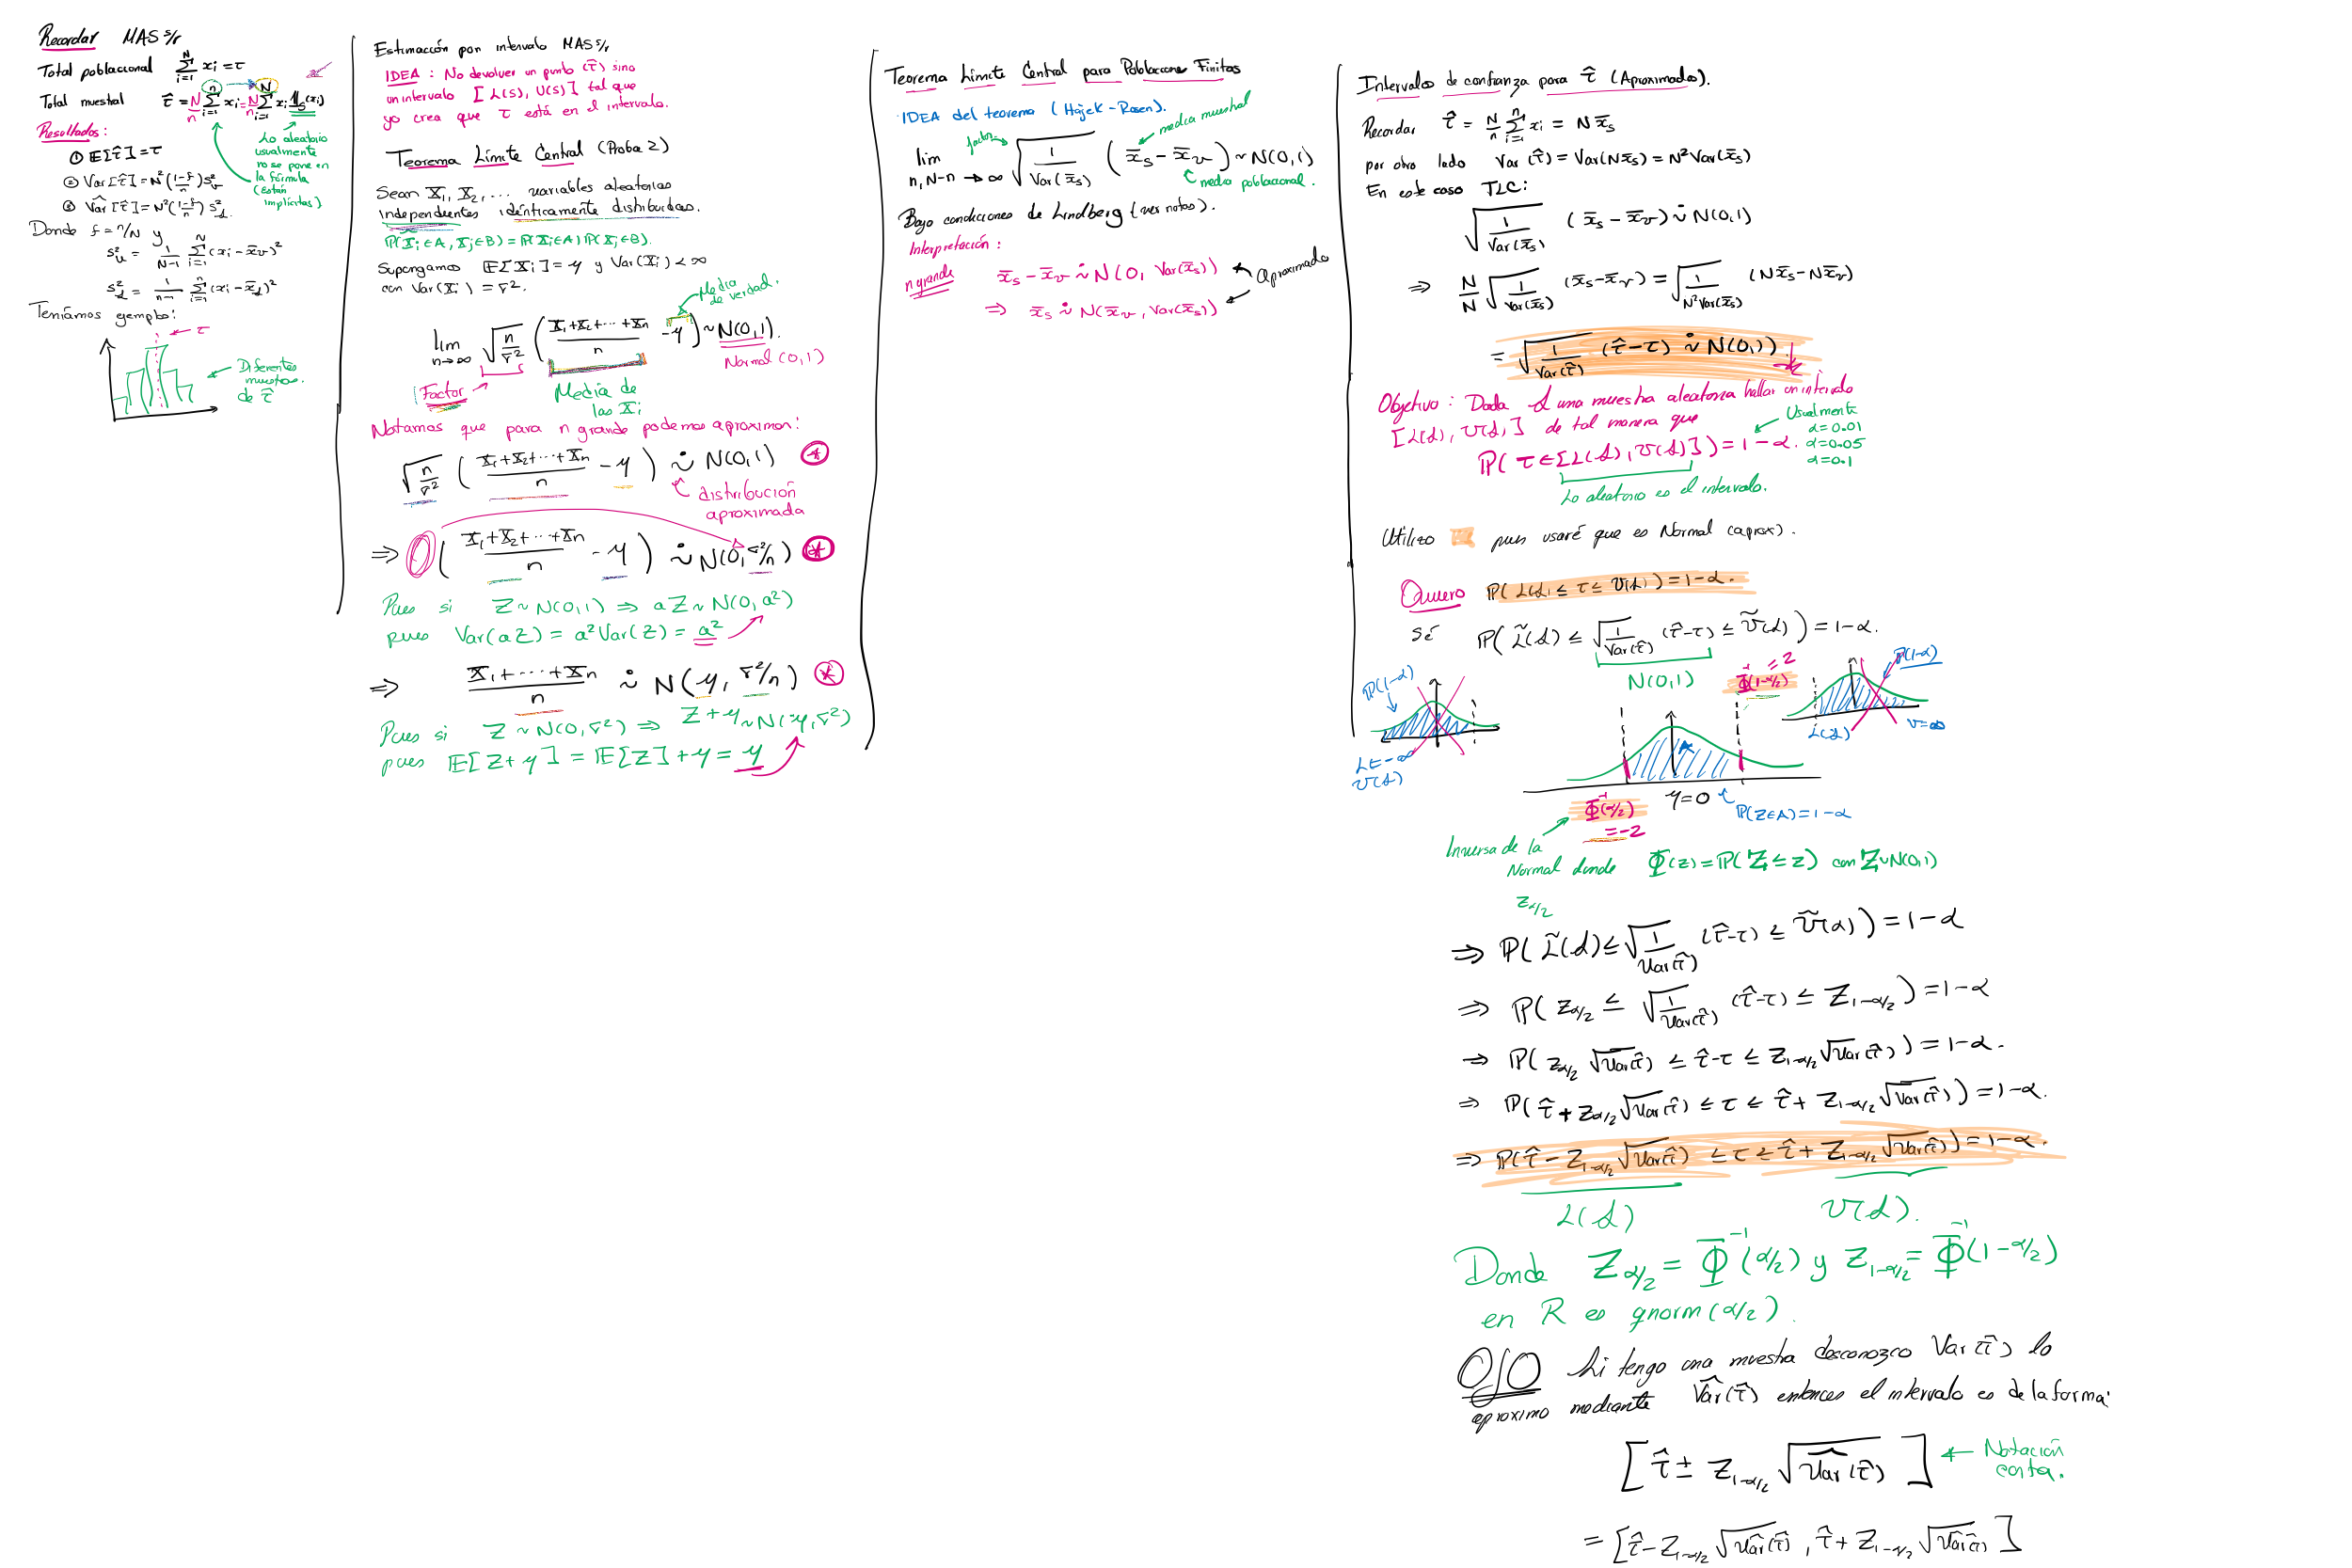 Recordar MAS s/r
Total poblacional $\sum_{i=1}^{N} x_i = \tau$
Total muestral $\hat{\tau} = \frac{N}{n}\sum_{i=1}^{n} x_i = \frac{N}{n}\sum_{i=1}^{N} x_i \mathbb{1}_S(x_i)$
Resultados:
① $\mathbb{E}[\hat{\tau}] = \tau$
② $Var[\hat{\tau}] = N^2(\frac{1-f}{n}) S_U^2$
③ $\widehat{Var}[\hat{\tau}] = N^2(\frac{1-f}{n}) S_s^2$
Lo aleatorio
usualmente
no se pone en
la fórmula
(están
implícitas)
Donde f = n/N y
$S_U^2 = \frac{1}{N-1}\sum_{i=1}^{N}(x_i - \bar{x}_U)^2$
$S_s^2 = \frac{1}{n-1}\sum_{i=1}^{n}(x_i - \bar{x}_s)^2$
Teníamos ejemplo:
τ
Diferentes
muestras
de $\hat{\tau}$
Estimacción por intervalo MAS s/r
IDEA: No devolver un punto ($\hat{\tau}$) sino
un intervalo [L(S), U(S)] tal que
yo crea que τ está en el intervalo.
Teorema Límite Central (Proba 2)
Sean X₁, X₂, ... variables aleatorias
independientes idénticamente distribuidas.
ℙ(Xᵢ∈A, Xⱼ∈B) = ℙ(Xᵢ∈A) ℙ(Xⱼ∈B).
Supongamos 𝔼[Xᵢ] = μ y Var(Xᵢ) < ∞
con Var(Xᵢ) = σ².
Media
de verdad.
$\lim_{n\to\infty} \sqrt{\frac{n}{\sigma^2}} \left(\frac{X_1+X_2+\cdots+X_n}{n} - \mu\right) \sim N(0,1).$
Normal (0,1)
Factor
Media de
las Xᵢ
Notamos que para n grande podemos aproximar:
$\sqrt{\frac{n}{\sigma^2}} \left(\frac{X_1+X_2+\cdots+X_n}{n} - \mu\right) \dot\sim N(0,1)$ ⊛
distribución
aproximada
$\Rightarrow \left(\frac{X_1+X_2+\cdots+X_n}{n} - \mu\right) \dot\sim N(0, \sigma^2/n)$ ⊛
Pues si Z ~ N(0,1) ⇒ aZ ~ N(0, a²)
pues Var(aZ) = a² Var(Z) = a²
$\Rightarrow \frac{X_1+\cdots+X_n}{n} \dot\sim N(\mu, \sigma^2/n)$ ⊛
Pues si Z ~ N(0, σ²) ⇒ Z+μ ~ N(μ, σ²)
pues 𝔼[Z+μ] = 𝔼[Z] + μ = μ
Teorema Límite Central para Poblaciones Finitas
IDEA del teorema (Hájek-Rosen).
factor
media muestral
$\lim_{n, N-n \to \infty} \sqrt{\frac{1}{Var(\bar{x}_s)}} (\bar{x}_s - \bar{x}_U) \sim N(0,1)$
media poblacional.
Bajo condiciones de Lindberg (ver notas).
Interpretación:
n grande $\bar{x}_s - \bar{x}_U \dot\sim N(0, Var(\bar{x}_s))$
Aproximado
$\Rightarrow \bar{x}_s \dot\sim N(\bar{x}_U, Var(\bar{x}_s))$
Intervalos de confianza para $\hat{\tau}$ (Aproximado).
Recordar $\hat{\tau} = \frac{N}{n}\sum_{i=1}^{n} x_i = N\bar{x}_s$
por otro lado $Var(\hat{\tau}) = Var(N\bar{x}_s) = N^2 Var(\bar{x}_s)$
En este caso TLC:
$\sqrt{\frac{1}{Var(\bar{x}_s)}} (\bar{x}_s - \bar{x}_U) \dot\sim N(0,1)$
$\Rightarrow \frac{N}{N}\sqrt{\frac{1}{Var(\bar{x}_s)}} (\bar{x}_s - \bar{x}_U) = \sqrt{\frac{1}{N^2 Var(\bar{x}_s)}} (N\bar{x}_s - N\bar{x}_U)$
$= \sqrt{\frac{1}{Var(\hat{\tau})}} (\hat{\tau} - \tau) \dot\sim N(0,1)$
Objetivo: Dada s una muestra aleatoria hallar un intervalo
[L(s), U(s)] de tal manera que
Usualmente
α = 0.01
α = 0.05
α = 0.1
ℙ(τ ∈ [L(s), U(s)]) = 1 - α.
Lo aleatorio es el intervalo.
Utilizo pues usaré que es Normal (aprox).
Quiero ℙ(L(s) ≤ τ ≤ U(s)) = 1 - α.
Sé $\mathbb{P}(\tilde{L}(s) \le \sqrt{\frac{1}{Var(\hat{\tau})}} (\hat{\tau} - \tau) \le \tilde{U}(s)) = 1 - \alpha.$
N(0,1)
ℙ(1-α)
L = -∞
U(s)
Φ⁻¹(1-α/2) = 2
ℙ(1-α)
L(s)
U = ∞
Φ⁻¹(α/2)
= -2
μ = 0
ℙ(Z∈A) = 1-α
Inversa de la
Normal donde Φ(z) = ℙ(Z ≤ z) con Z ~ N(0,1)
$z_{\alpha/2}$
$\Rightarrow \mathbb{P}(\tilde{L}(s) \le \sqrt{\frac{1}{Var(\hat{\tau})}} (\hat{\tau} - \tau) \le \tilde{U}(s)) = 1 - \alpha$
$\Rightarrow \mathbb{P}(z_{\alpha/2} \le \sqrt{\frac{1}{Var(\hat{\tau})}} (\hat{\tau} - \tau) \le Z_{1-\alpha/2}) = 1 - \alpha$
$\Rightarrow \mathbb{P}(z_{\alpha/2} \sqrt{Var(\hat{\tau})} \le \hat{\tau} - \tau \le z_{1-\alpha/2} \sqrt{Var(\hat{\tau})}) = 1 - \alpha.$
$\Rightarrow \mathbb{P}(\hat{\tau} + z_{\alpha/2} \sqrt{Var(\hat{\tau})} \le \tau \le \hat{\tau} + z_{1-\alpha/2} \sqrt{Var(\hat{\tau})}) = 1 - \alpha.$
$\Rightarrow \mathbb{P}(\hat{\tau} - Z_{1-\alpha/2} \sqrt{Var(\hat{\tau})} \le \tau \le \hat{\tau} + Z_{1-\alpha/2} \sqrt{Var(\hat{\tau})}) = 1 - \alpha.$
L(s) U(s).
Donde $Z_{\alpha/2} = \Phi^{-1}(\alpha/2)$ y $Z_{1-\alpha/2} = \Phi^{-1}(1-\alpha/2)$
en R es qnorm(α/2).
OJO Si tengo una muestra desconozco $Var(\hat{\tau})$ lo
aproximo mediante $\widehat{Var}(\hat{\tau})$ entonces el intervalo es de la forma:
$[\hat{\tau} \pm z_{1-\alpha/2} \sqrt{\widehat{Var}(\hat{\tau})}]$ ← Notación
corta.
$= [\hat{\tau} - Z_{1-\alpha/2} \sqrt{\widehat{Var}(\hat{\tau})}, \hat{\tau} + Z_{1-\alpha/2} \sqrt{\widehat{Var}(\hat{\tau})}]$